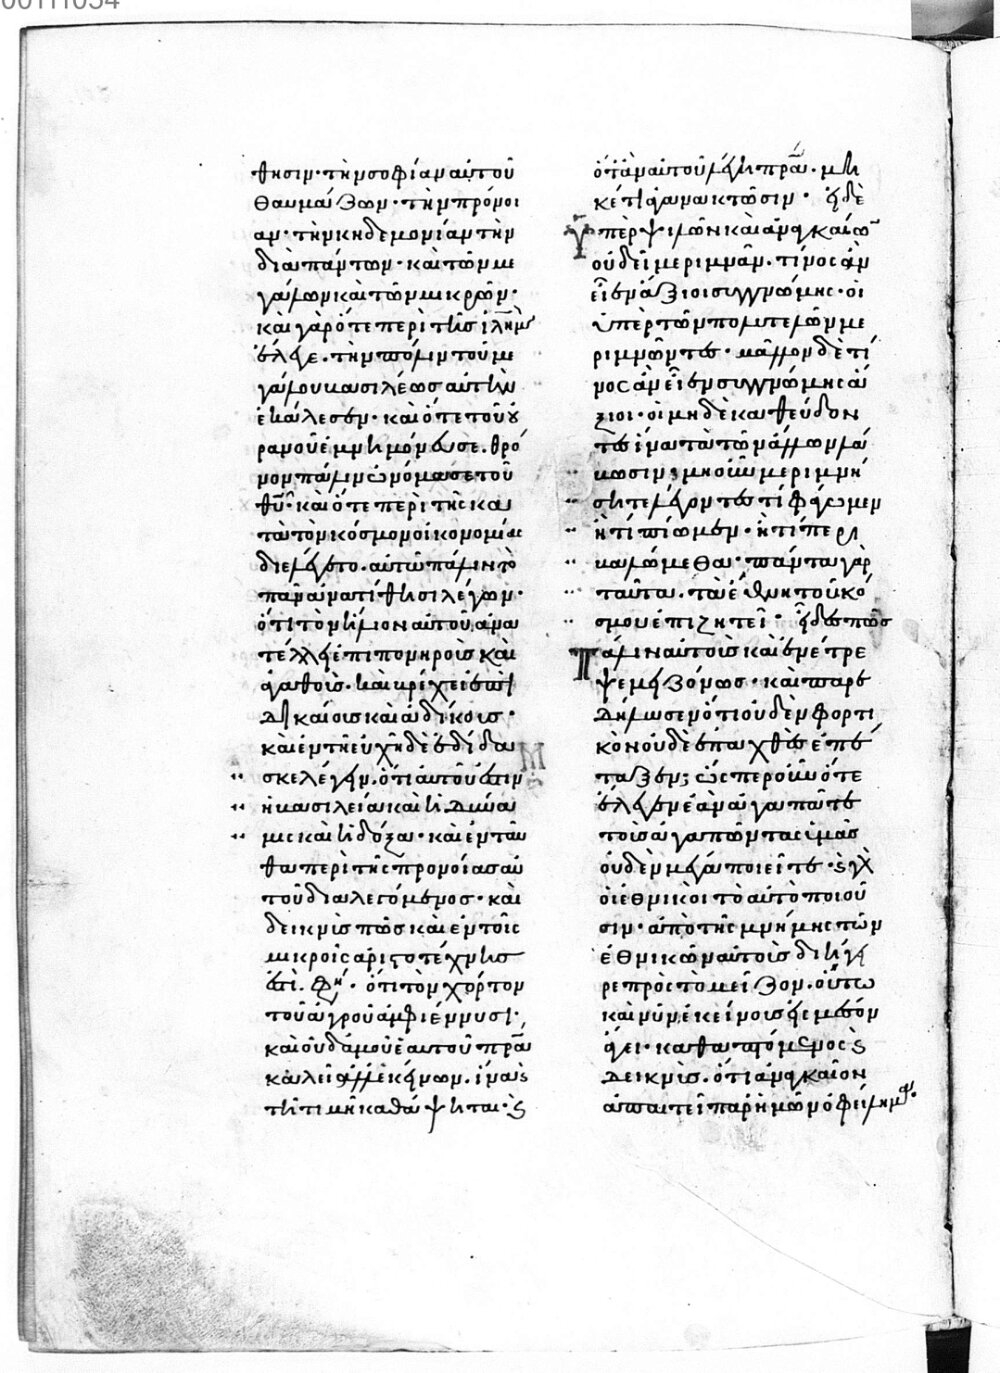 00111034
θησιν· τὴν σοφίαν αὐτοῦ
θαυμάζων· τὴν πρόνοι
αν· τὴν κηδεμονίαν τὴν
διὰ πάντων· καὶ τῶν με
γάλων καὶ τῶν μικρῶν·
καὶ γὰρ ὅτε περὶ τῆς ἱλῆμ
ἔλεγε· τὴν πόλιν τοῦ με
γάλου βασιλέως αὐτὴν
ἐκάλεσεν· καὶ ὅτε τοῦ οὐ
ρανοῦ ἐμνημόνευσε· θρό
νον πάλιν ὠνόμασε τοῦ
θυ· καὶ ὅτε περὶ τῆς κα
τὰ τὸν κόσμον οἰκονομίας
διελέγετο· αὐτῶ πάλιν τὸ
πᾶν ἀνατίθησι λέγων·
ὅτι τὸν ἥλιον αὐτοῦ ἀνα
τέλλει ἐπὶ πονηροῖς καὶ
ἀγαθοῖς· καὶ βρέχει ἐπὶ
δικαίοις καὶ ἀδίκοις·
καὶ ἐν τῇ εὐχῇ δὲ ἐδίδα
σκε λέγειν· ὅτι αὐτοῦ ἐστιν
ἡ βασιλεία καὶ ἡ δύνα
μις καὶ ἡ δόξα· καὶ ἐνταῦ
θα περὶ τῆς προνοίας αὐ
τοῦ διαλεγόμενος· καὶ
δεικνὺς πῶς καὶ ἐν τοῖς
μικροῖς ἀριστοτέχνης
ἐστί· φη· ὅτι τὸν χόρτον
τοῦ ἀγροῦ ἀμφιέννυσι·
καὶ οὐδαμοῦ ἑαυτοῦ πρα
καλεῖ ἀλλ' ἐκείνων· ἵνα κ
τῇ τιμῇ καθάψηται· κ
ὅταν αὐτοῦ λέγη πρα· μη
κέτι ἀγανακτῶσιν· εἰ δὲ
Ὑπὲρ ψιλῶν καὶ ἀναγκαίων
οὐ δεῖ μεριμνᾶν· τίνος ἂν
εἶεν ἄξιοι συγγνώμης· οἱ
ὑπὲρ τῶν πολυτελῶν με
ριμνῶντες· μᾶλλον δὲ τί
νος ἂν εἶεν συγγνώμης ἄ
ξιοι· οἱ μηδὲ καθεύδον
τες ἵνα τὰ τῶν ἄλλων λά
βωσιν; μὴ οὖν μεριμνή
σητε λέγοντες τί φάγωμεν
ἢ τί πίωμεν· ἢ τί περι
βαλώμεθα· πάντα γὰρ
ταῦτα· τὰ ἔθνη τοῦ κό
σμου ἐπιζητεῖ· εἶδες πῶς
Πάλιν αὐτοὺς καὶ ἐνέτρε
ψε μειζόνως· καὶ παρε
δήλωσεν ὅτι οὐδὲν φορτι
κὸν οὐδὲ ἐπαχθὲς ἐπέ
ταξεν; ὥσπερ οὖν ὅτε
ἔλεγεν ἐὰν ἀγαπᾶτε
τοὺς ἀγαπῶντας ὑμᾶς
οὐδὲν μέγα ποιεῖτε· κ γὰρ
οἱ ἐθνικοὶ τὸ αὐτὸ ποιοῦ
σιν· ἀπὸ τῆς μνήμης τῶν
ἐθνικῶν αὐτοὺς διήγει
ρε πρὸς τὸ μεῖζον· οὕτω
καὶ νῦν ἐκείνους εἰς μέσον
ἄγει· καθαπτόμενος κ
δεικνὺς· ὅτι ἀναγκαῖον
ἀπαιτεῖ παρ' ἡμῶν ὀφείλημα·